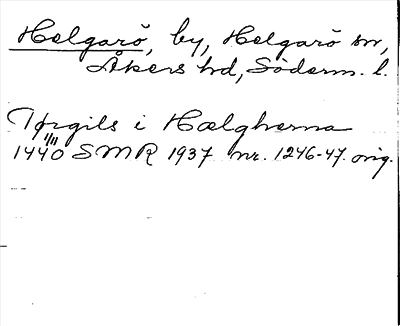 Helgarö, by, Helgarö sn,
Åkers hd, Söderm. l.
Torgils i Hælgherna
1440 11/11 SMR 1937 nr. 1246-47. orig.